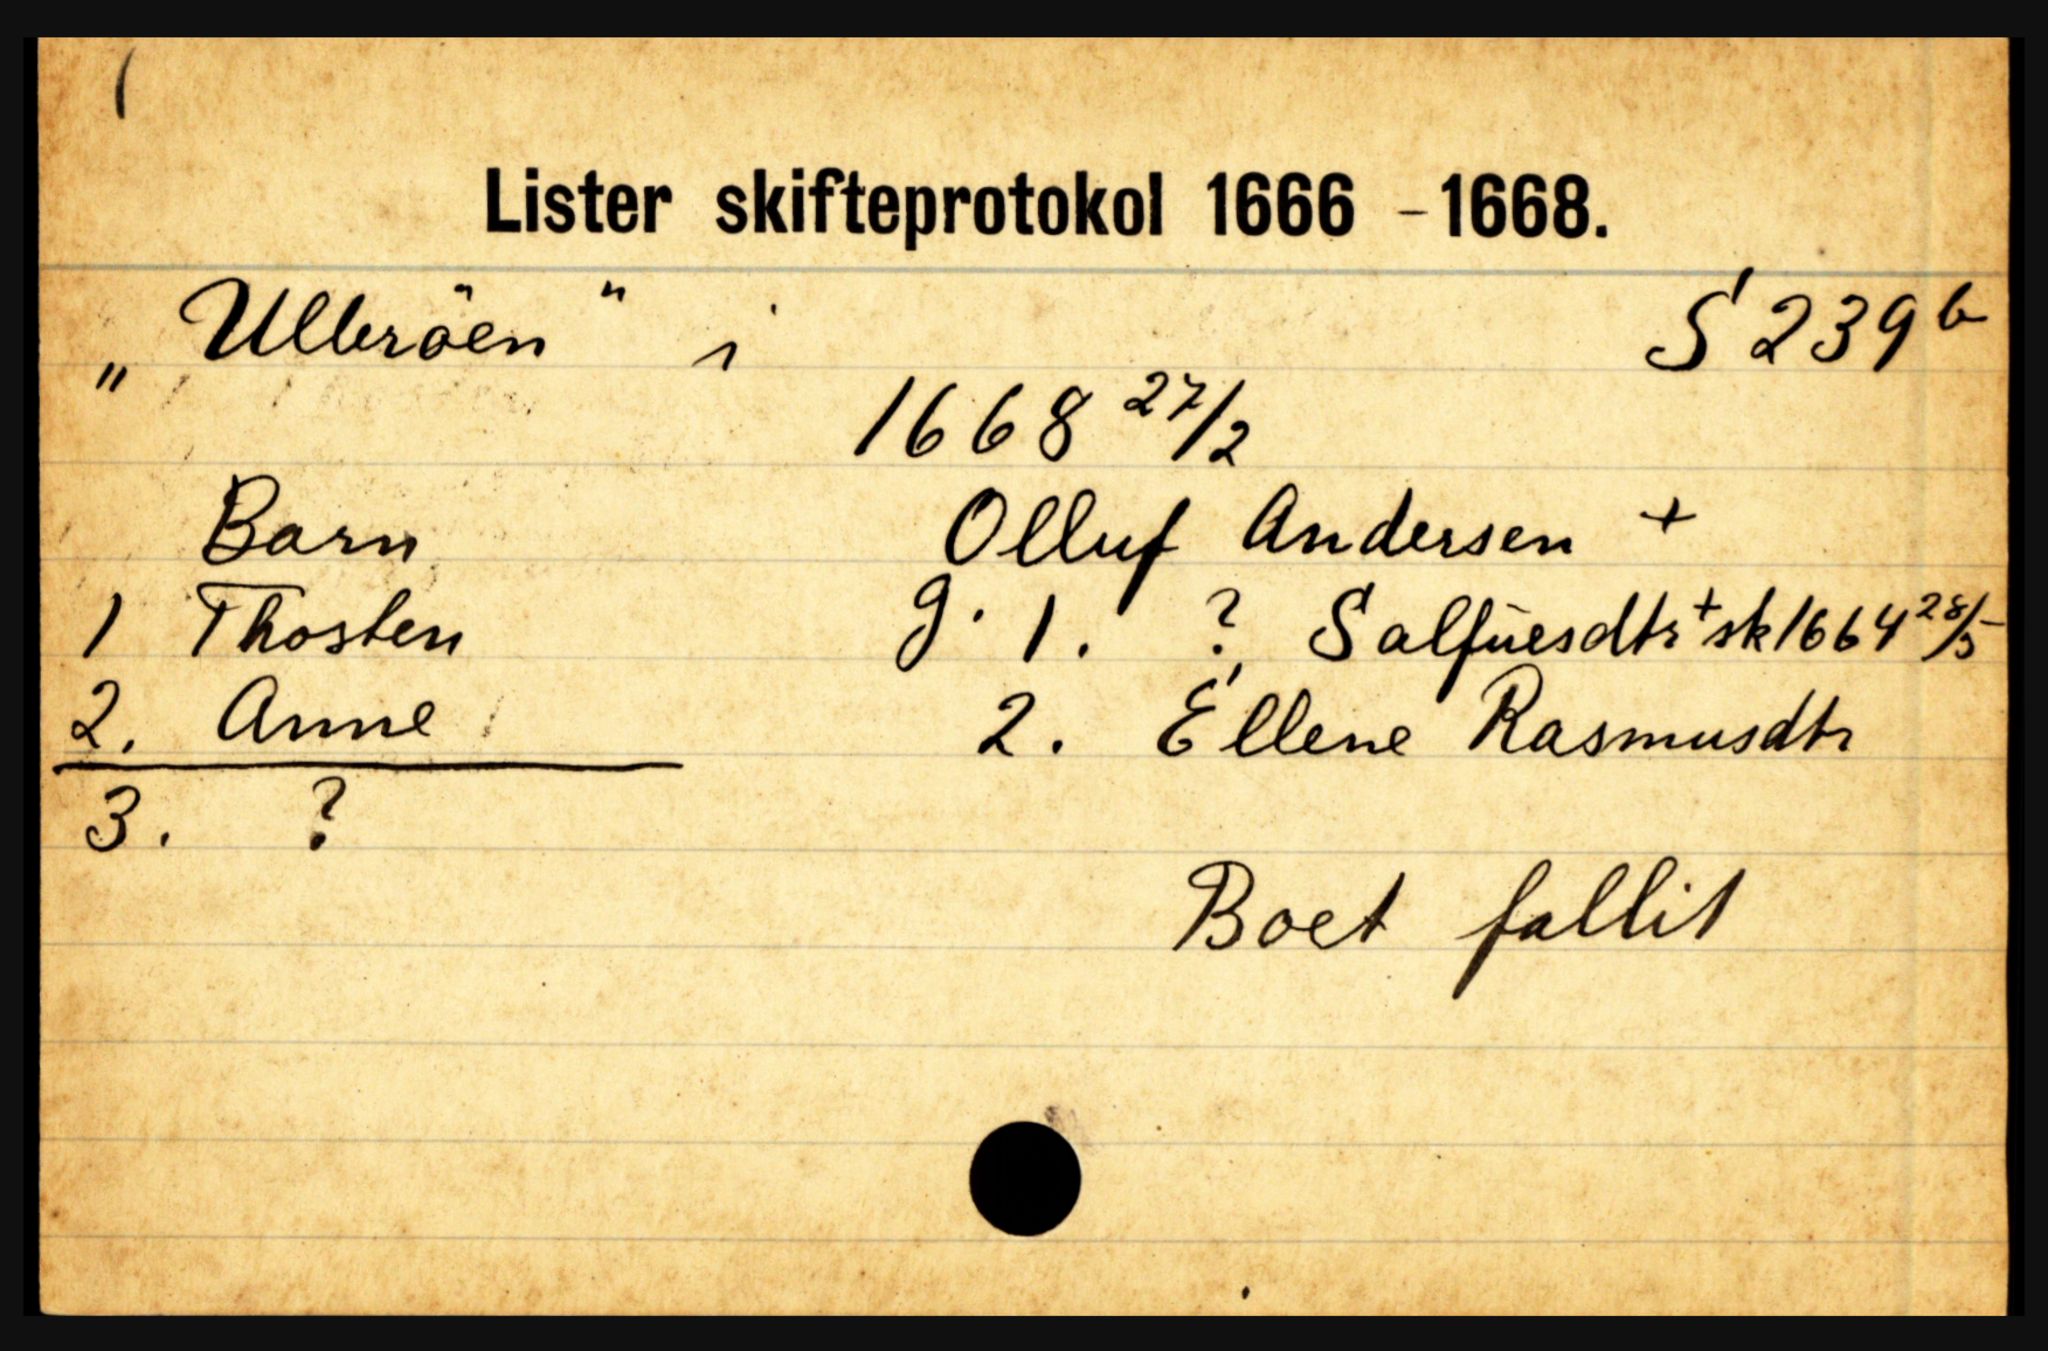 Lister skifteprotokol 1666 - 1668.
„Ulleröen" i S 239 b
1668 27/2
Barn Olluf Andersen +
1 Thosten g. 1. ? Salfuesdtr + sk 1664 28/5
2. Anne 2. Ellene Rasmusdtr
3. ?
Boet fallit